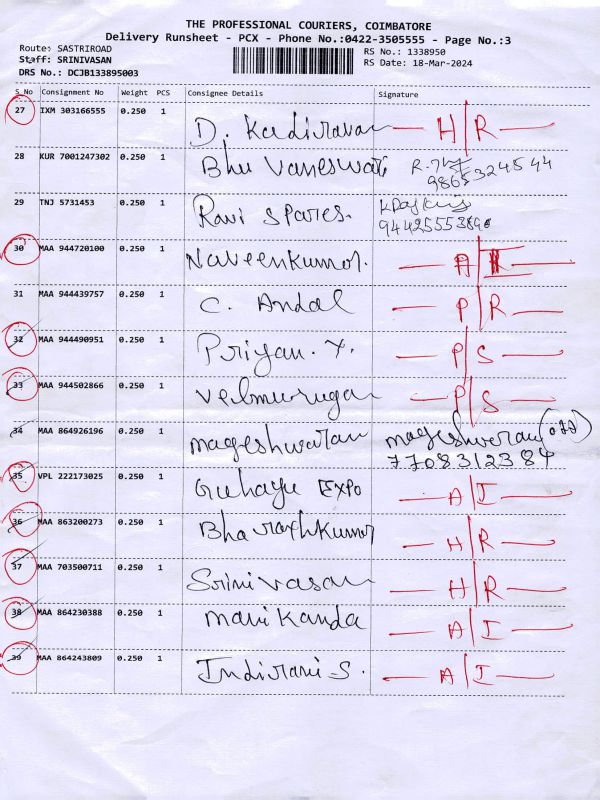 THE PROFESSIONAL COURIERS, COIMBATORE
Delivery Runsheet - PCX - Phone No.:0422-3505555 - Page No.:3
Route: SASTRIROAD RS No.: 1338950
Staff: SRINIVASAN RS Date: 18-Mar-2024
DRS No.: DCJB133895003
S_No Consignment No Weight PCS Consignee Details Signature
27 IXM 303166555 0.250 1 D. Kadiravan H|R
28 KUR 7001247302 0.250 1 Bhuvaneswari
29 TNJ 5731453 0.250 1 Ravi Spares.
30 MAA 944720100 0.250 1 Naveenkumor. A|R
31 MAA 944439757 0.250 1 C. Andal P|R
32 MAA 944490951 0.250 1 Priyan. Y. P|S
33 MAA 944502866 0.250 1 Velmurugan P|S
34 MAA 864926196 0.250 1 mageshwaran mageshweran
7708312384
35 VPL 222173025 0.250 1 Guhayu EXPO A|I
36 MAA 863200273 0.250 1 Bharathkumor H|R
37 MAA 703500711 0.250 1 Srinivasan H|R
38 MAA 864230388 0.250 1 mani Kanda A|I
39 MAA 864243809 0.250 1 Indirani S. A|I